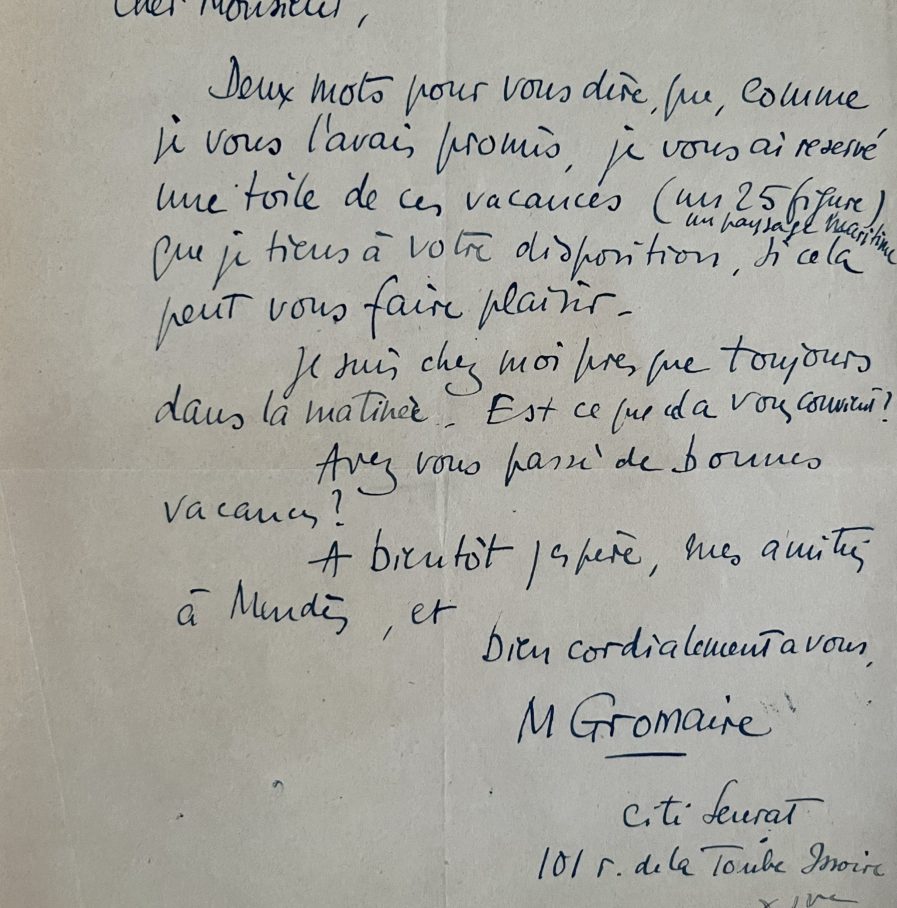 Cher Monsieur,
Deux mots pour vous dire, que, comme
je vous l'avais promis, je vous ai reservé
une toile de ces vacances (un 25 figure)
un paysage maritime
que je tiens à votre disposition, si cela
peut vous faire plaisir -
Je suis chez moi presque toujours
dans la matinée - Est ce que cela vous convient?
Avez vous passé de bonnes
vacances?
A bientôt j'espère, mes amitiés
à Mendès, et
bien cordialement a vous,
M Gromaire
Cité Seurat
101 r. de la Tombe Issoire